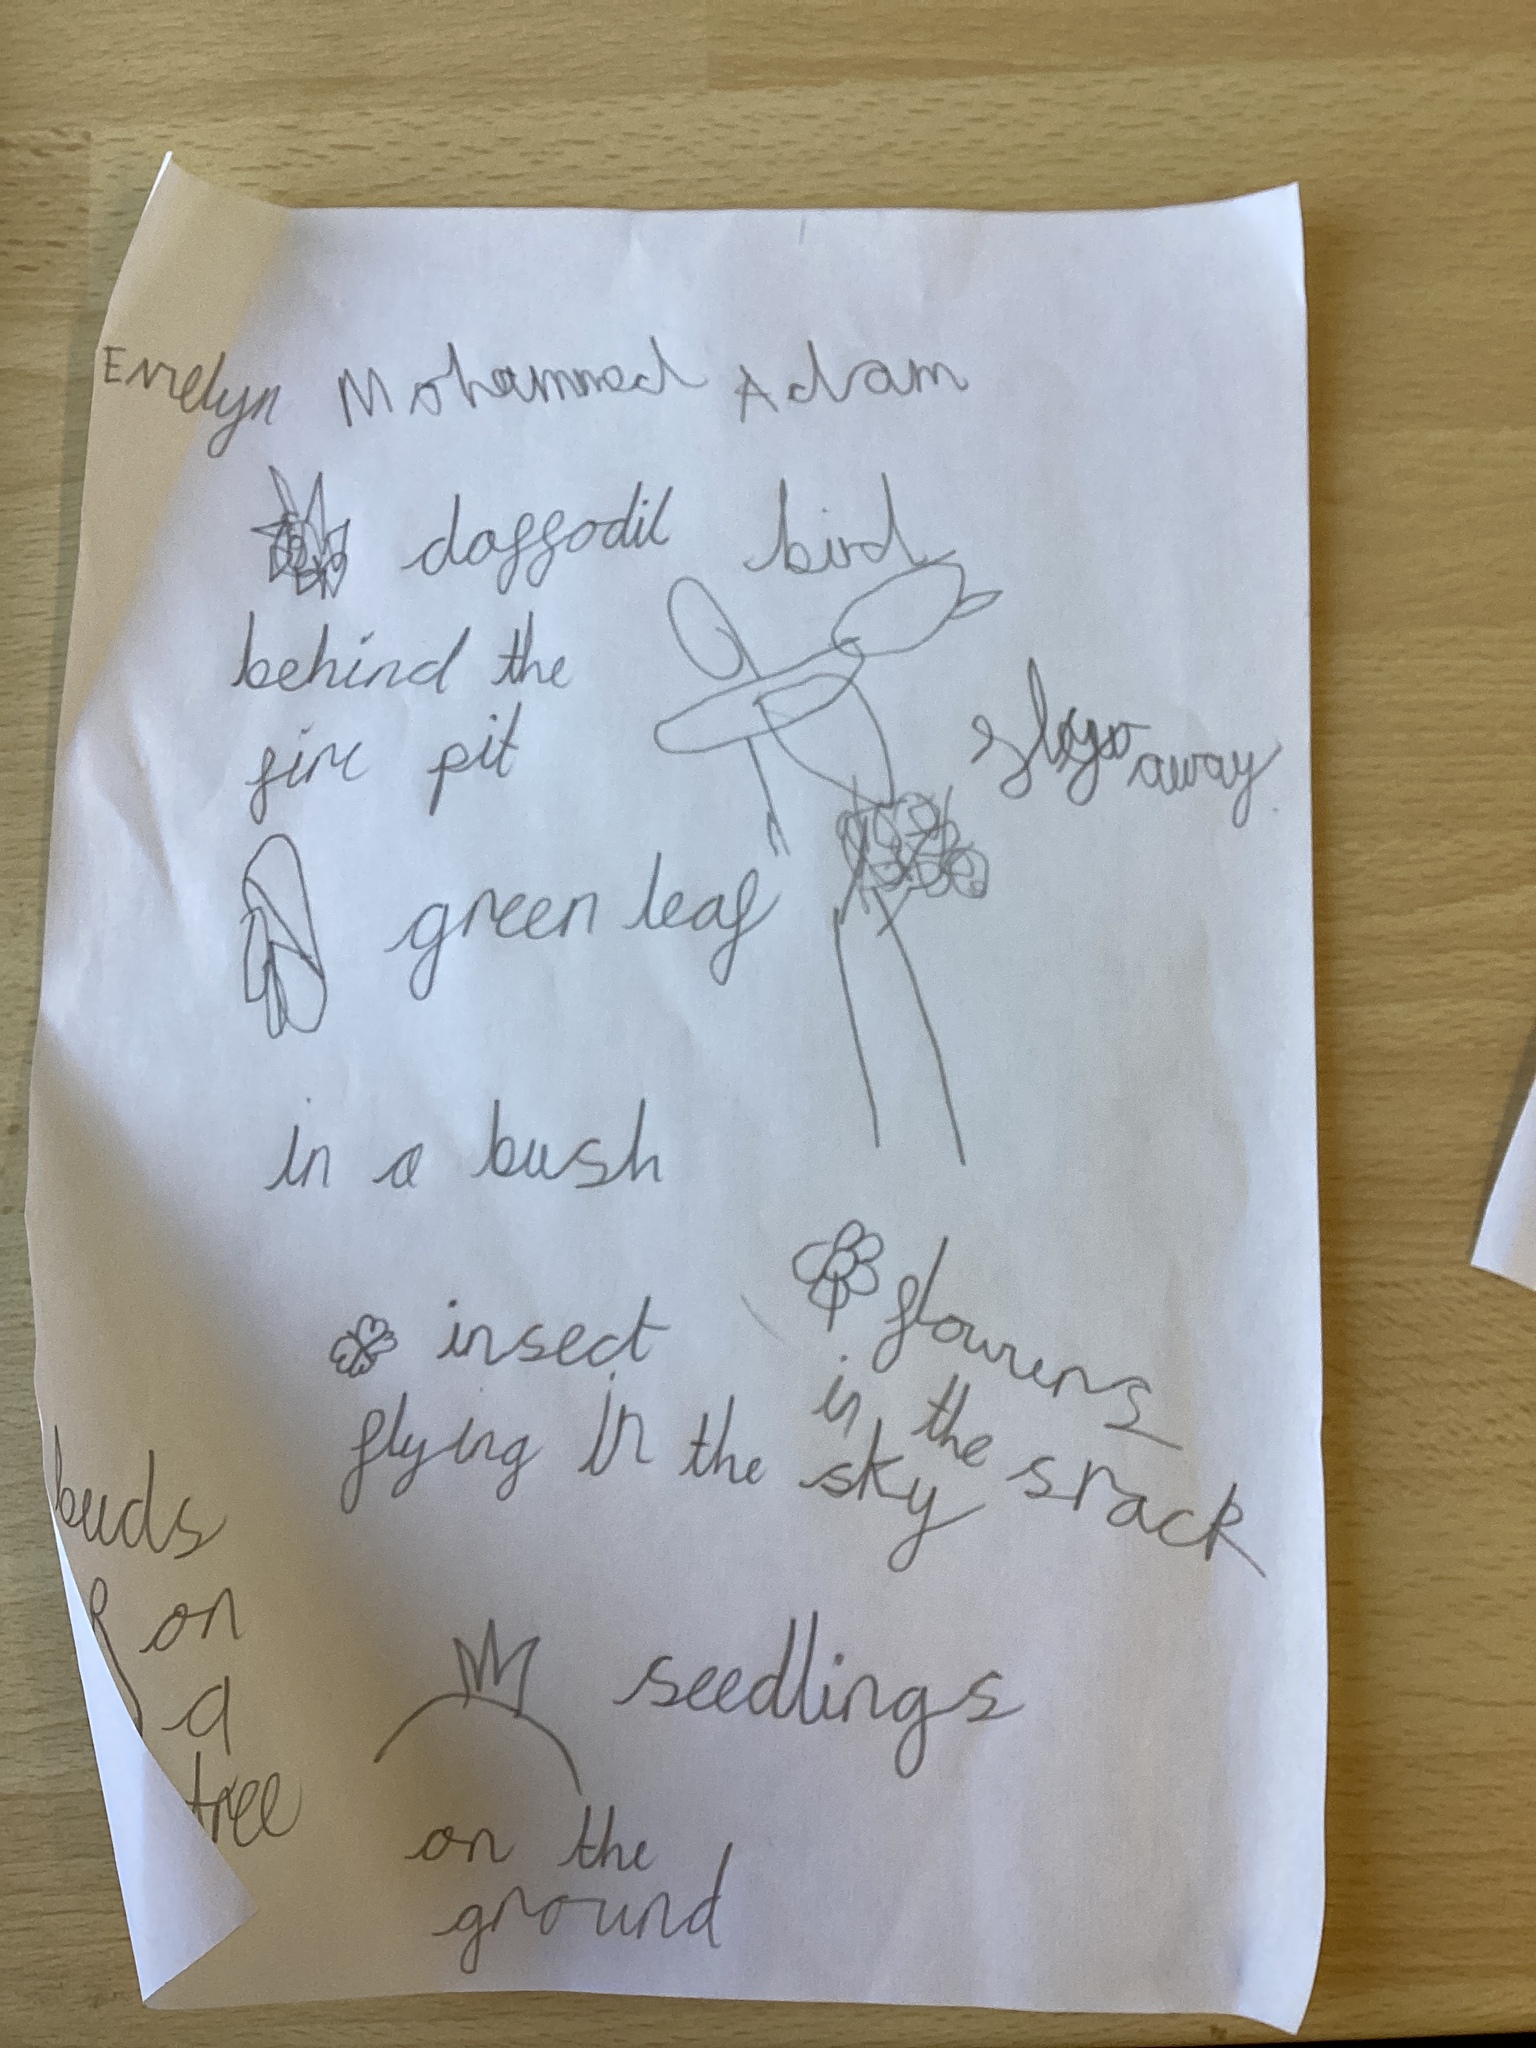 Evelyn Mohammed Adam
daffodil
behind the
fire pit
bird
away
green leaf
in a bush
insect
flying in the sky
flowers
in the
buds
on
a
tree
seedlings
on the
ground